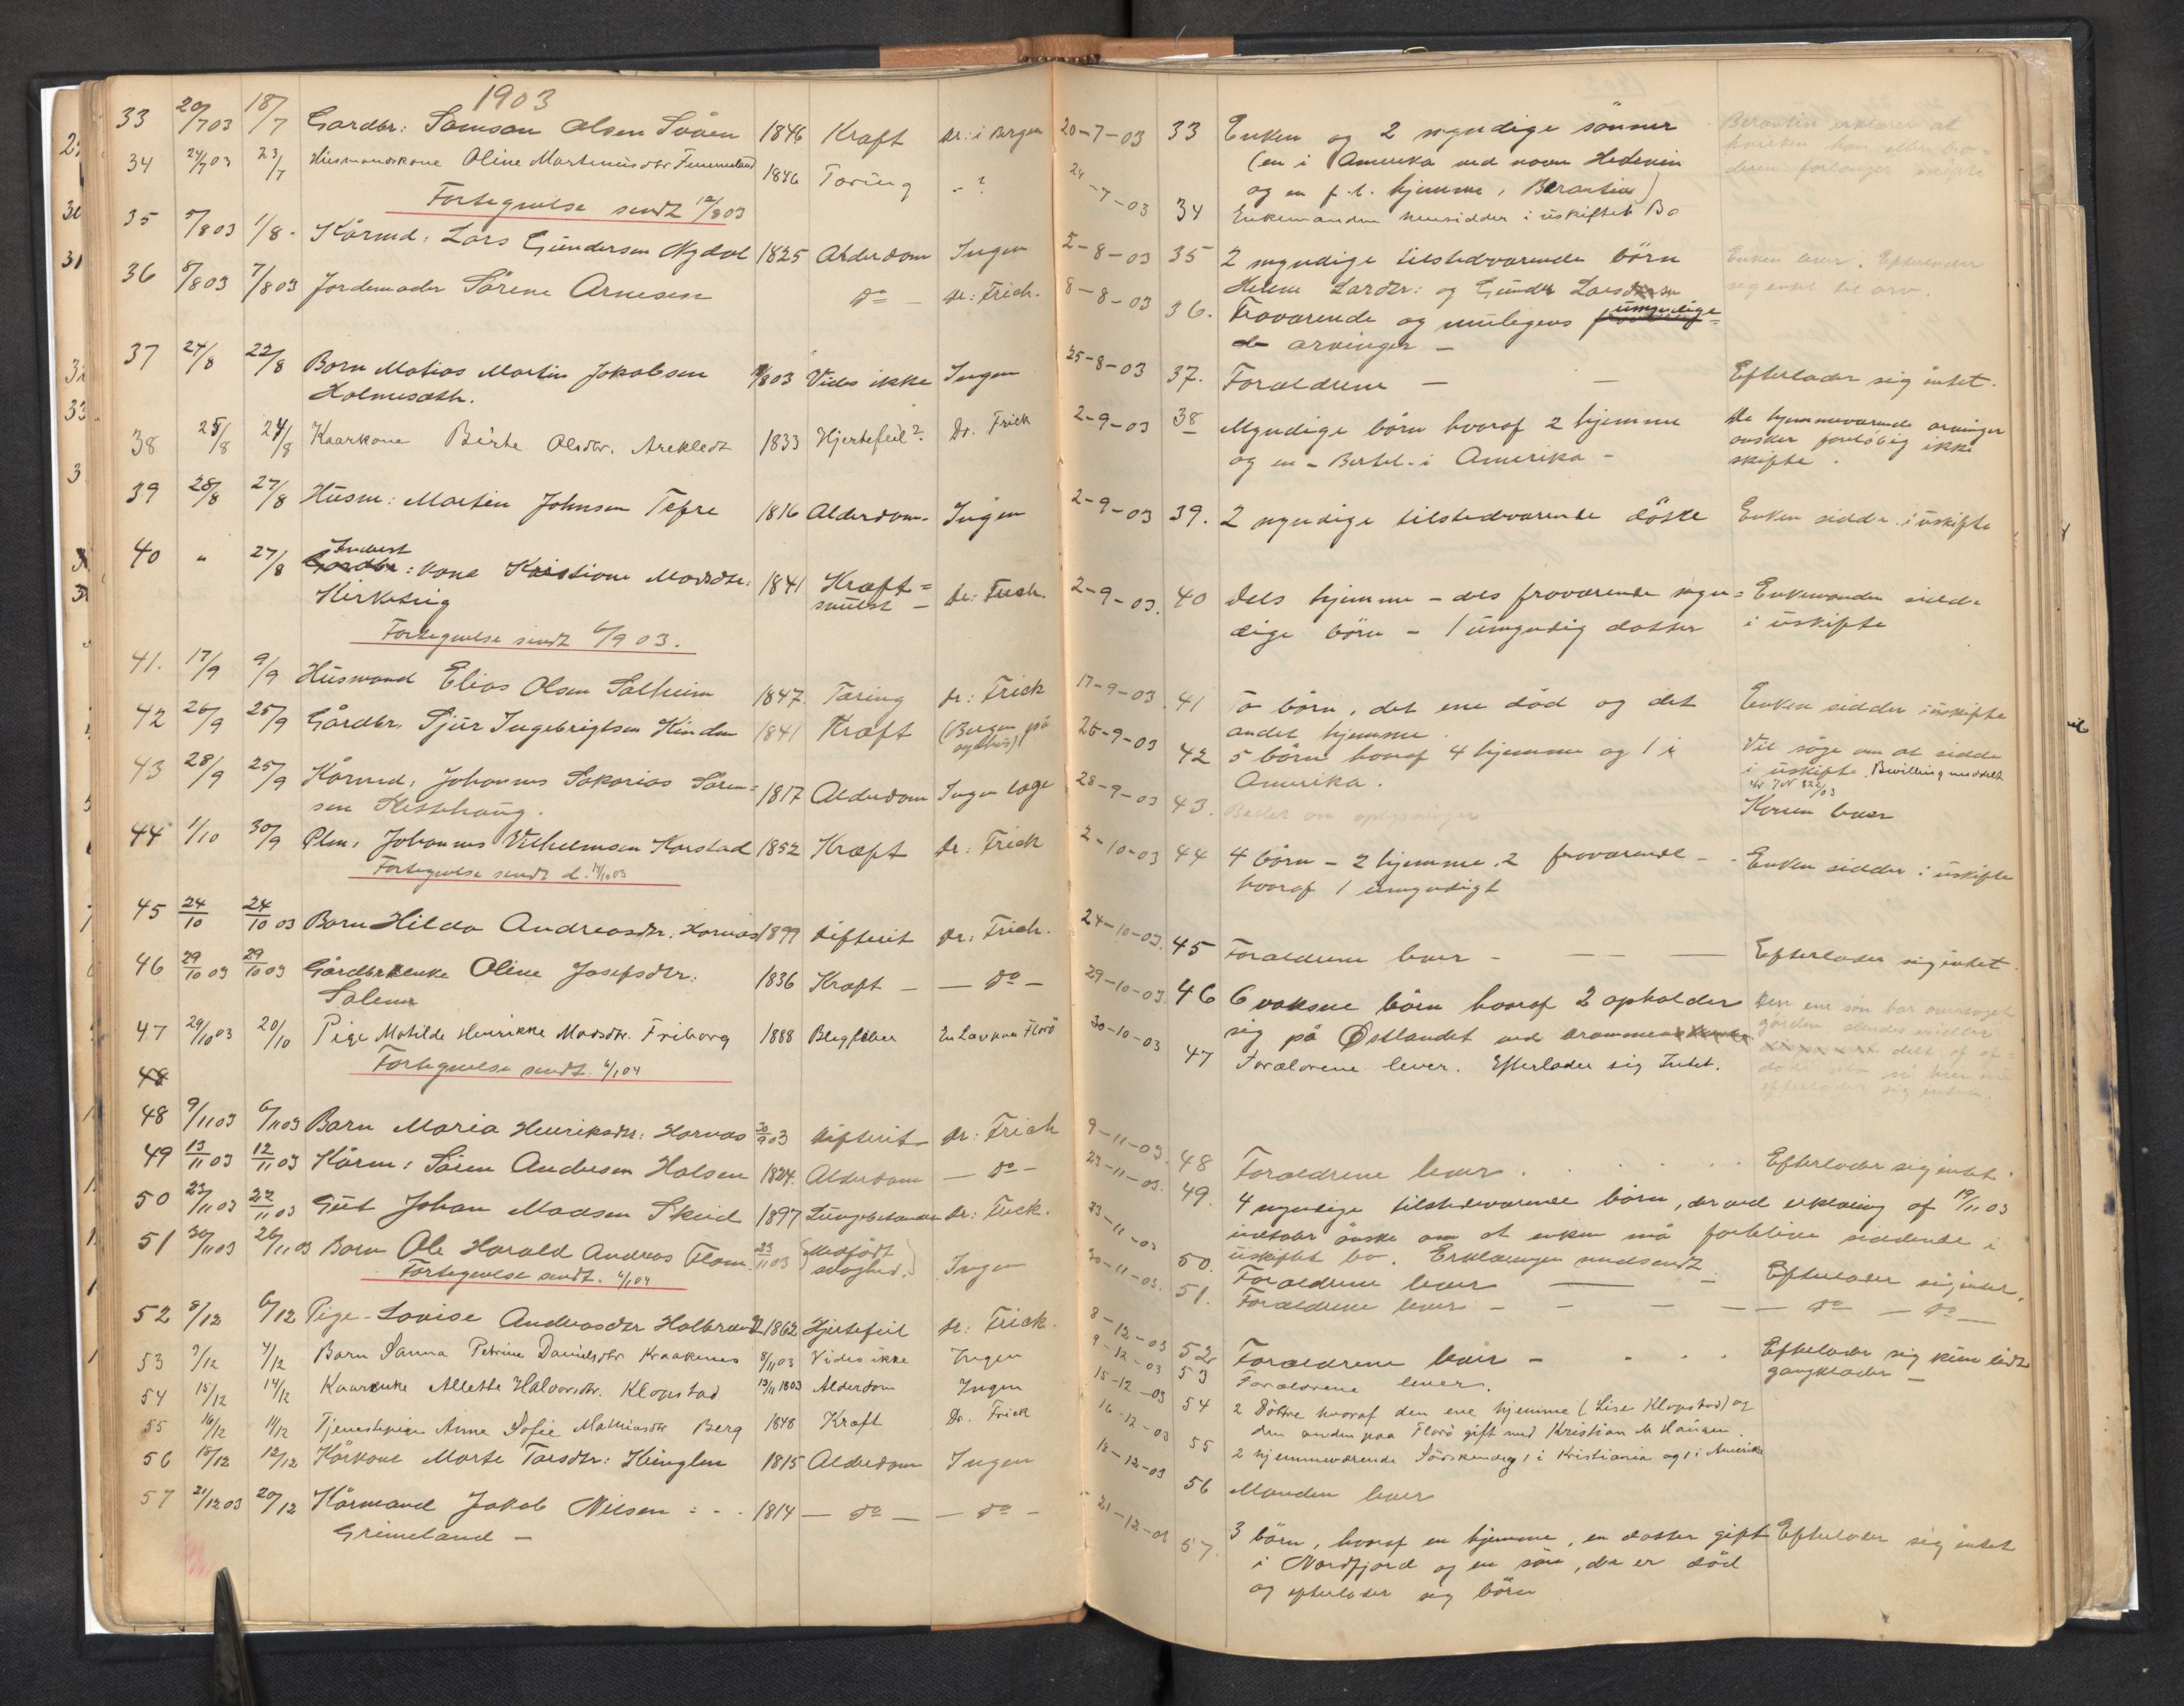 1903
33 20/7 03 18/7 Gardbr: Samson Olsen Svöen 1846 Kræft Dr: i Bergen
34 24/7 03 23/7 Husmandskone Oline Martinusdtr Femmeland 1846 Tæring - ?
Fortegnelse sendt 12/8 03
35 5/8 03 1/8 - Kårmd: Lars Gundersen Nydal 1825 Alderdom Ingen
36 8/8 03 7/8 03 Jordemoder Sörine Arnesen do - Dr: Frich.
37 24/8 22/8 Barn Matias Martin Jakobsen /8 03 Vides ikke Ingen
Holmesæth.
38 25/8 24/8 Kaarkone Birte Olsdtr. Areklett 1833 Hjertefeil? Dr. Frich
39 28/8 27/8 Husm: Martin Johnsen Tefre 1816 Alderdom - Ingen
40 " 27/8 Inderst
Gårdbr: kone Kristiane Madsdtr: 1841 Kræft= Dr: Frich.
Kirketeig svulst -
Fortegnelse sendt 6/9 03.
41. 17/9 9/9 Husmand Elias Olsen Solheim 1847. Tæring Dr: Frich
42 26/9 25/9 Gårdbr. Sjur Ingebrigtsen Hinden 1841 Kræft (Bergen på
sygehus)
43 28/9 25/9 Kårmd: Johannes Sakarias Sören= 1817 Alderdom Ingen læge
sen Klettehaug.
44 1/10 30/9 Plm: Johannes Vilhelmsen Horstad 1852 Kræft Dr: Frich
Fortegnelse sendt d. 14/10 03
45 24/10 24/10 03 Barn Hilda Andreasdtr. Hornæs 1899 Difterit Dr: Frich.
46 29/10 03 29/10 03 Gårdbr enke Oline Josefsdtr: 1836 Kræft - - do -
Solem
47 29/10 03 20/10 Pige Matilde Henrikke Madsdtr. Friborg 1888 Blegfeber En Læ Florö
Fortegnelse sendt. 6/1 04
48
48 9/11 03 6/11 03 Barn Maria Henriksdtr: Hornæs 30/9 03 Difterit Dr: Frich
49 13/11 03 12/11 03 Kårm: Sören Andersen Halsen 1824. Alderdom - do -
50 23/11 03 22/11 03 Gut Johan Madsen Skeid 1897 Lungebetændelse Dr: Frich.
51 30/11 03 26/11 03 Barn Ole Harald Andreas Flom. 23/11 03 (Medfödt
svaghed.) Ingen
Fortegnelse sendt. 6/1 04
52 8/12 6/12 Pige Lovise Andreasdtr Holbrændt 1862 Hjertefeil Dr: Frich.
53 9/12 4/12 Barn Sanna Petrine Danielsdtr Kraakenes 8/11 03 Vides ikke Ingen
54 15/12 14/12 Kaarenke Allette Halvorsdtr. Klopstad 13/11 1803 Alderdom Ingen
55 16/12 14/12 Tjenestepige Anne Sofie Mathiasdtr Berg 1848 Kræft Dr. Frich
56 18/12 12/12 Kårkone Marte Larsdtr: Hinglen 1815 Alderdom Ingen
57 21/12 03 20/12 Kårmand Jakob Nilsen = - . 1814 - do - - do -
Grimeland -
20-7-03 33 Enken og 2 myndige sönner Beraatin erklærer at
(en i Amerika ved navn Hedevin
og en f.t. hjemme, Berantin) deren forlanger skifte
24-7-03 34 Enkemanden hensidder i uskiftet Bo
5-8-03 35 2 myndige tilstedværende börn Enken lever. Efterlader
Helene Larsdtr: og Gunder Larsen sig intet til arv.
8-8-03 36. Fraværende og muligens umyndige
arvinger -
25-8-03 37. Forældrene - - Efterlader sig intet.
2-9-03 38 Myndige börn hvoraf 2 hjemme De hjemmeværende arvinger
og en - Bertel - i Amerika - önsker foreløbig ikke
skifte.
2-9-03 39. 2 myndige tilstedværende döttre Enken sidder i uskifte
2-9-03. 40 Dels hjemme - dels fraværende myn= Enkemanden sidder
dige börn - 1 umyndig datter i uskifte
17-9-03. 41 To börn, det ene död og det Enken sidder i uskifte
andet hjemme.
26-9-03 42 5 börn hvoraf 4 hjemme og 1 i Vil söge om at sidde
Amerika. i uskifte. Bevilling meddelt
28-9-03 43. Beder om oplysninger Konen lever
2-10-03 44 4 börn - 2 hjemme, 2 fraværende - - Enken sidder i uskifte
hvoraf 1 umyndigt
24-10-03. 45 Forældrene lever - - - - Efterlader sig intet.
29-10-03. 46 6 voksne börn hvoraf 2 opholder Den ene sön har overtaget
sig på Östlandet ved Drammen gården
30-10-03 47 Forældrene lever. Efterlader sig Intet.
efterlader sig intet.
9-11-03. 48 Forældrene lever. . . . . Efterlader sig intet.
23-11-03. 49. 4 myndige tilstedeværende börn, der ved erklæring af 19/11 03
indtaler önske om at enken må forblive siddende i
uskiftet bo. Erklæringen medsendt
23-11-03 50. Forældrene lever - Efterlader sig intet.
30-11-03. 51. Forældrene lever - - - - - do - do -
8-12-03 52 Forældrene lever - - . . Efterlader sig kun lidt
gangklæder -
9-12-03 53 Forældrene lever.
15-12-03 54 2 Döttre hvoraf den ene hjemme (Lise Klopstad) og
den anden paa Florö gift med Kristian M. Haugen.
16-12-03 55 2 hjemmeværende Söskende og 1 i Kristiania og 1 i Amerika
18-12-03 56 Manden lever
21-12-03 57. 3 börn, hvoraf en hjemme, en datter gift Efterlader sig intet
i Nordfjord og en sön, der er död
og efterlader sig börn